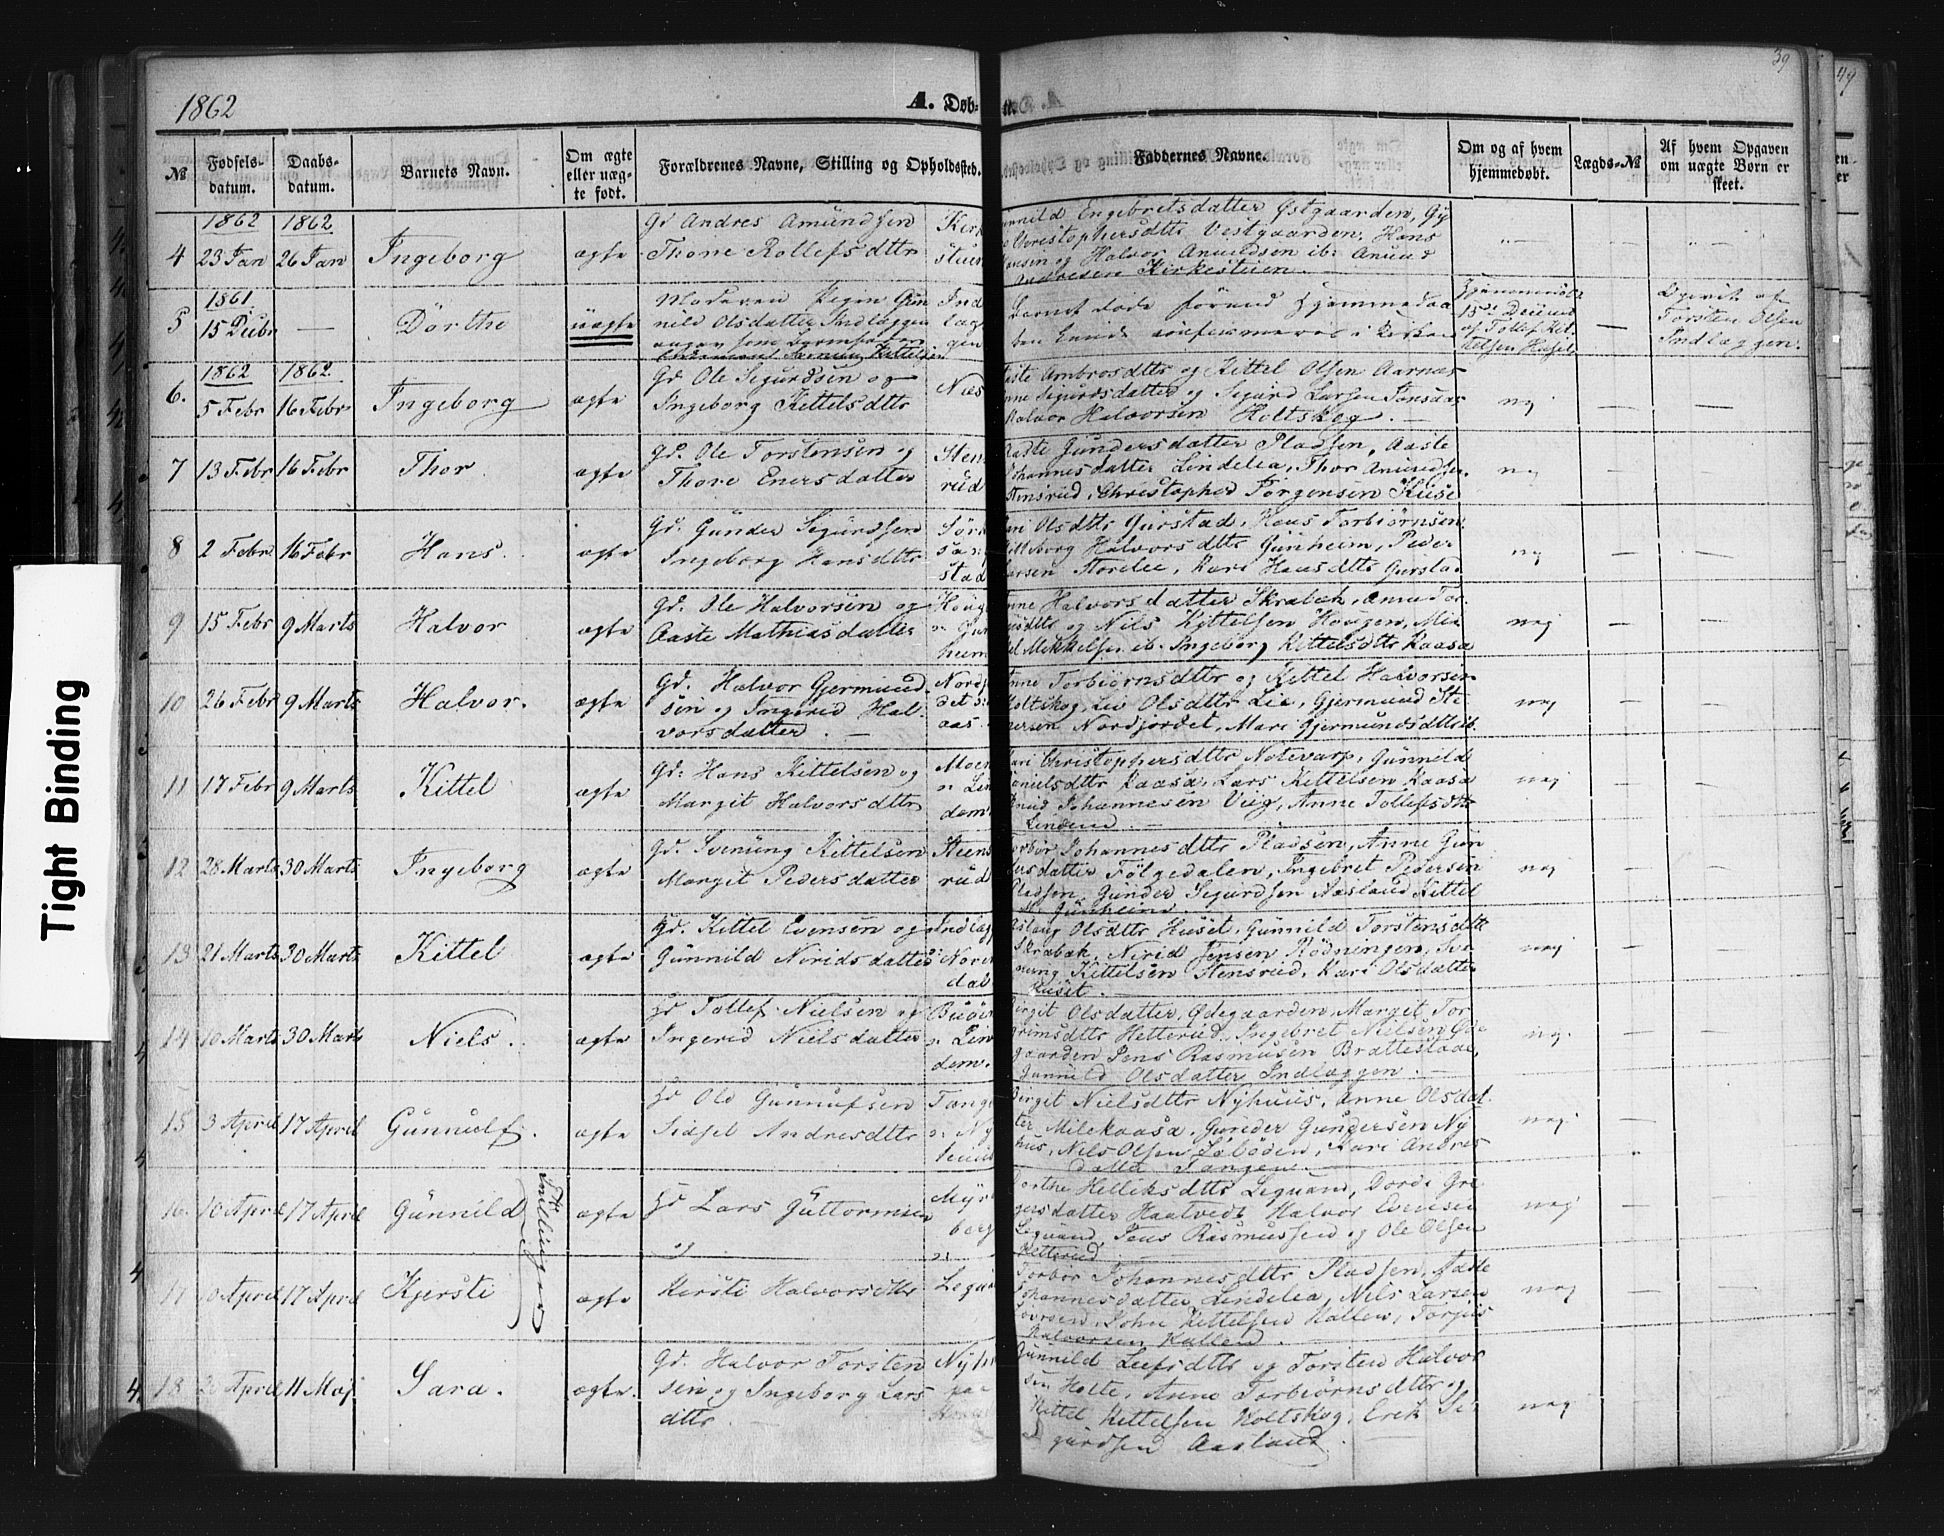 39
49
1862
A. Døb-
Tight Binding
№
Fødsels-
datum.
Daabs-
datum.
Barnets Navn.
Om ægte
eller uæg-
te født.
Forældrenes Navne, Stilling og Opholdssted.
Faddernes Navne.
Om og af hvem
hjemmedøbt.
Lægds-№
Af hvem Opgaven
om uægte Børn er
skeet.
1862 1862
4 23 Jan 26 Jan Ingeborg ægte
Gd Andres Amundsen
Thone Rollefsdttr
Engebretsdatter Østgaarden, Gy
Christophersdttr Vestgaarden, Hans
og Halvor Amundsen ib: Amund
Andresen Kirkestuen
1861
5 15 Decbr — Dorthe uægte
Moderen Pigen Gun
nild Olsdatter Indlæggen
Barnet døde forend Hjemmedaa
ben kunde confirmeres i Kirken
15de
af Tollef Kit
telsen Huset
—
Opgivet af
Torsten Olsen
Indlæggen.
1862 1862
6. 5 Febr 16 Febr Ingeborg ægte
Gd. Ole Sigurdsen og
Ingeborg Kittelsdttr
Næs
Ambrosdttr og Kittel Olsen Aarnæs
Sigurdsdatter og Sigurd Larsen
Halvor Halvorsen Holtskog. —
nej — —
7 13 Febr 16 Febr Thor. ægte
gd. Ole Torstensen og
Thore Enersdatter
Sten
rud
Aaste Gundersdatter Pladsen, Aaste
Johannesdatter Lindelia, Thor Amundsen
Stensrud, Christopher Jørgensen Huse
nej — —
8 2 Febr. 16 Febr Hans. ægte
Gd. Gunder Sigurdsen
Ingeborg Hansdttr
stad
Olsdttr Gurstad, Hans Torbiørnsen
Halvorsdttr Gunheim, Peder
Larsen Storelie, Kari Hansdttr Gursta
nej — —
9 15 Febr 9 Marts Halvor ægte
Gd. Ole Halvorsen og
Aaste Mathiasdatter
Anne Halvorsdatter Skrabek,
og Nils Kittelsen Hougen, Mik
kel Mikkelsen ib. Ingeborg Kittelsdttr Kaasa
nej — —
10 26 Febr 9 Marts Halvor. ægte
Gd. Halvor Gjermund
sen og Ingerid Hal
vorsdatter. —
Nordfj
det s:
aas.
Anne Torbiørnsdttr og Kittel Halvorsen
Holtskog, Liv Olsdttr Lie, Gjermund Ste
nersen Nordfjordet, Mari Gjermundsdttr ib.
nej — —
11 17 Febr 9 Marts Kittel ægte
Gd: Hans Kittelsen og
Margit Halvorsdttr
Moen
Lin
dem
Kari Christophersdttr Notevarp, Gunnild
Danielsdttr Kaasa, Lars Kittelsen Kaasa
Knud Johannesen Vig, Anne Tollefsdttr
Lindem —
nej — —
12 28 Marts 30 Marts Ingeborg ægte
Gd. Svenung Kittelsen
Margit Pedersdatter
Steens
rud
Torbør Johannesdttr Pladsen, Anne Gun
dersdatter Følgedalen, Ingebret Pedersen
Pladsen, Gunder Sigurdsen Aasland, Kittel
Gunheim
nej — —
13 21 Marts 30 Marts Kittel ægte
Gd. Kittel Evensen og
Gunnild Niridsdatter
Indlæg
Noren
dal
Aslaug Olsdttr Huset, Gunnild Torstensdttr
Skrabak, Nirid Jensen Rødningen, Sve
nung Kittelsen Stensrud, Kari Olsdatter
Huset.
nej — —
14 10 Marts 30 Marts Niels. ægte
Gd Tollef Nielsen og
Ingerid Nielsdatter
Lin
dem.
Birgit Olsdatter, Ødegaarden, Margit Tor
grimsdttr Hetterud, Ingebret Nielsen Øde
gaarden, Jens Rasmusen Brattestaae,
Gunnild Olsdatter Indlæggen. —
nej. —
15 3 April 17 April Gunnulf. ægte
Gd Ole Gunnufsen
Andresdttr
Tange
Ny
Birgit Nielsdttr Nyhuus, Anne Olsdat
ter Milekaasa, Gunder Gundersen Ny
hus, Nils Olsen Løbøden, Kari Andres
datter Tangen
nej. —
16. 10 April 17 April Gunnild Tvillinger ægte
Gd Lars Guttormsen
og
Myr
berg
Dorthe Helliksdttr Leqvand, Dordi Gre
gersdatter Haatvedt, Halvor Evensen
Leqvand, Jens Rasmussen og Ole Olsen
Hetterud —
nej —
17 10 April 17 April Kjersti ægte
Kersti Halvorsdttr
Leqva
Torbør Johannesdttr Pladsen, Aaste
Johannesdatter Lindelia, Nils Larsen
John Kittelsen Kallen, Torjus
Halvorsen Kallen.
nej — —
18 April 11 Maj Sara. ægte.
Gd. Halvor Torsten
sen og Ingeborg Lars
dttr. —
Nyh
Gunnild Leifsdttr og Torsten Halvor
sen Holte, Anne Torbiørnsdttr og
Kittel Kittelsen Holtskog, Erik Si
gurdsen Aasland.
nej — —